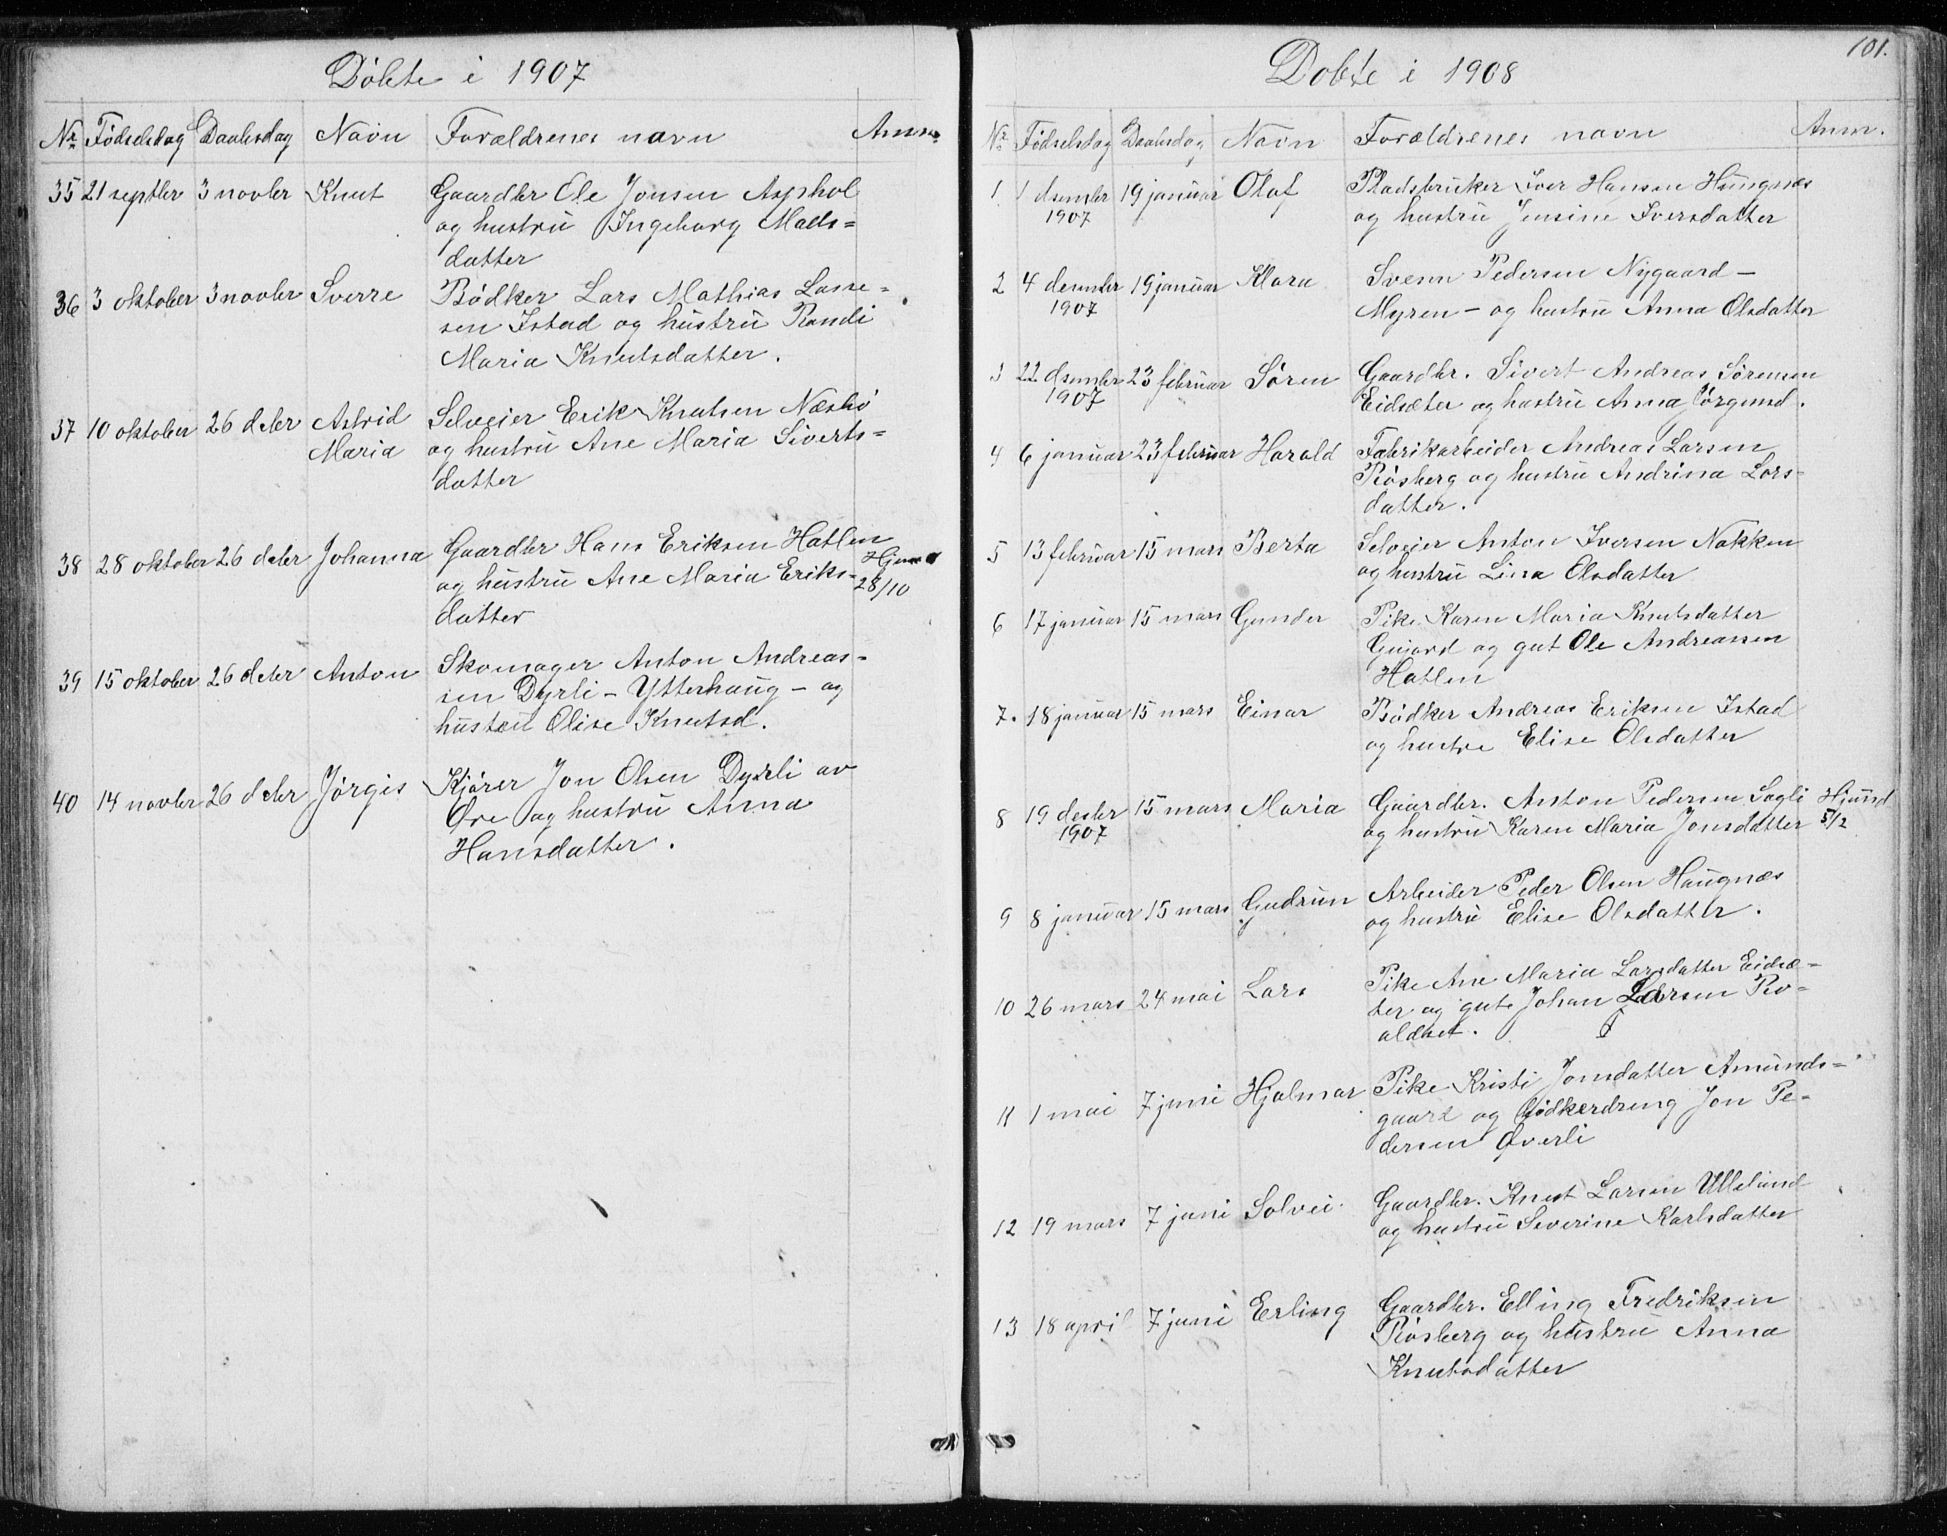 Døbte i 1907
Nr. Fødselsdag Daabsdag Navn Forældrenes navn Anm.
35 21 septbr 3 novbr Knut Gaardbr Ole Jonsen Asphol
og hustru Ingeborg Mads=
datter
36 3 oktober 3 novbr Sverre Bødker Lars Mathias Lasse=
sen Istad og hustru Randi
Maria Knutsdatter.
37 10 oktober 26 decbr Astrid Selveier Erik Knutsen Næsbø
Maria og hustru Ane Maria Siverts=
datter
38 28 oktober 26 decbr Johanna Gaardbr Hans Eriksen Hatlen Hjemd
og hustru Ane Maria Eriks- 28/10
datter
39 15 oktober 26 decbr Anton Skomager Anton Andreas-
sen Dyrli - Ytterhaug - og
hustru Olise Knutsd.
40 14 novbr 26 decbr Jørgis Kjører Jon Olsen Dyrli av
Øre og hustru Anna
Hansdatter.
101.
Dobte i 1908
Nr. Fødselsdag Daabsdag Navn Forældrenes navn Anm.
1. 1 desember 19 januar Olaf Pladsbruker Iver Hansen Haugnæs
1907 og hustru Jensine Iversdatter
2 4 desember 19 januar Klara Svenn Pedersen Nygaard -
1907 Myren - og hustru Anna Olsdatter
3 22 desember 23 februar Søren Gaardbr. Sivert Andreas Sørensen
1907 Eidsæter og hustru Anna Jørgensd.
4 6 januar 23 februar Harald Fabrikarbeider Andreas Larsen
Røsberg og hustru Andrina Lars-
datter.
5 13 februar 15 mars Berta Selveier Anton Iversen Nakken
og hustru Lina Olsdatter
6 17 januar 15 mars Gunder Pike Karen Maria Knutsdatter
og gut Ole Andreassen
Hatlen
7. 18 januar 15 mars Einar Bødker Andreas Eriksen Istad
og hustru Elise Olsdatter
8 19 desbr 15 mars Maria Gaardbr. Anton Pedersen Sagli Hjemd
1907 og hustru Karen Maria Jonsdatter 5/2
9 8 januar 15 mars Gudrun Arbeider Peder Olsen Haugnæs
og hustru Elise Olsdatter.
10 26 mars 24 mai Lars Pike Ane Maria Larsdatter Eidsæ-
ter og gut Johan Larsen Ro-
aldset.
11 1 mai 7 juni Hjalmar Pike Kristi Jonsdatter Amunds=
gaard og bødkerdreng Jon Pe-
dersen Øverli
12 19 mars 7 juni Solvei. Gaardbr. Knut Larsen Ulleland
og hustru Severine Karlsdatter
13 18 april 7 juni Erling Gaardbr. Elling Fredriksen
Røsberg og hustru Anna
Knutsdatter